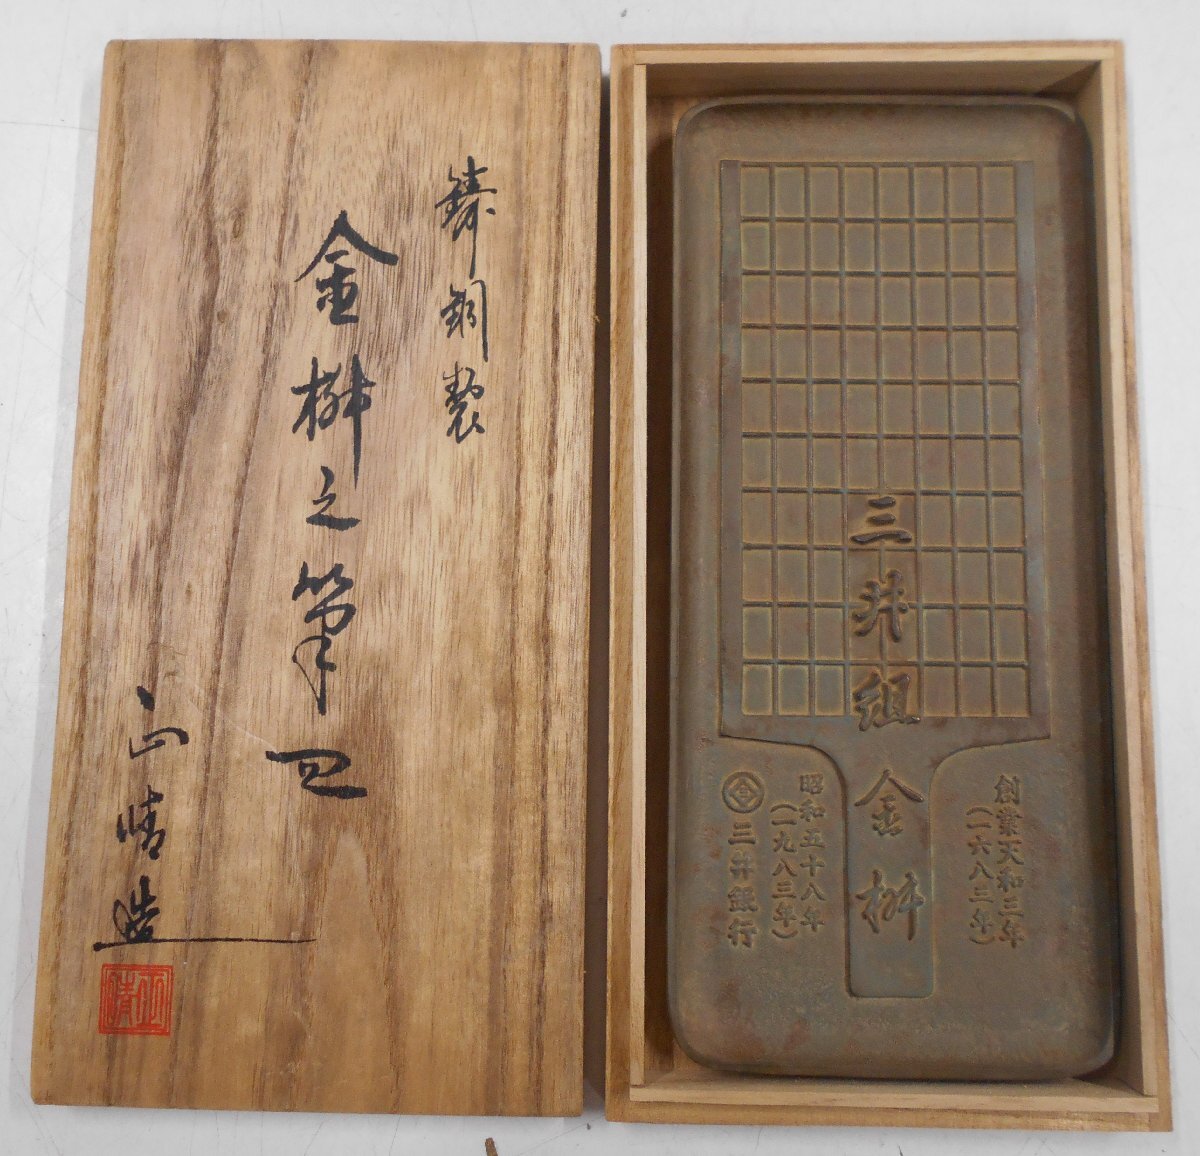 鋳銅製
金桝之筆皿
正晴造
三井組
金桝
創業天和三年
(一六八三年)
昭和五十八年
(一九八三年)
三井銀行